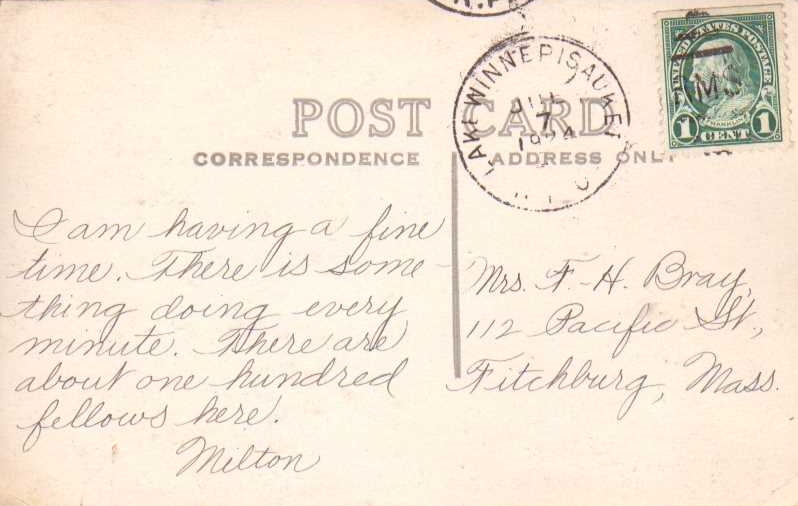 POST CARD
CORRESPONDENCE
ADDRESS ONLY
LAKE WINNEPISAUKEE
7
1924
UNITED STATES POSTAGE
RMS
FRANKLIN
1 CENT 1
I am having a fine
time. There is some-
thing doing every
minute. There are
about one hundred
fellows here.
Milton
Mrs. F. H. Bray,
112 Pacific St.,
Fitchburg, Mass.